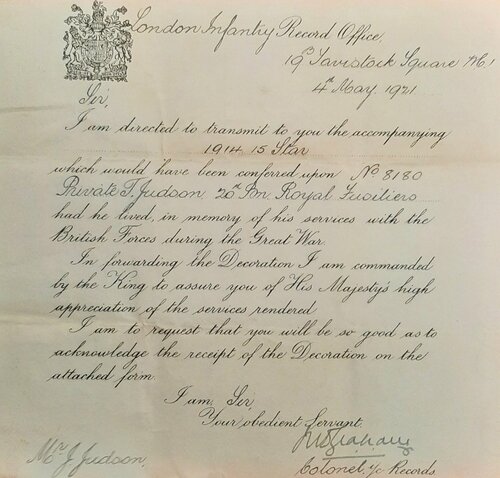 London Infantry Record Office,
19 Tavistock Square W.C.1
4th May 1921
Sir,
I am directed to transmit to you the accompanying
1914 15 Star
which would have been conferred upon No 8180
Private T. Judson 20th Bn Royal Fusiliers
had he lived, in memory of his services with the
British Forces during the Great War.
In forwarding the Decoration I am commanded
by the King to assure you of His Majesty's high
appreciation of the services rendered
I am to request that you will be so good as to
acknowledge the receipt of the Decoration on the
attached form.
I am, Sir,
Your obedient Servant,
Colonel i/c Records.
Mr J Judson,